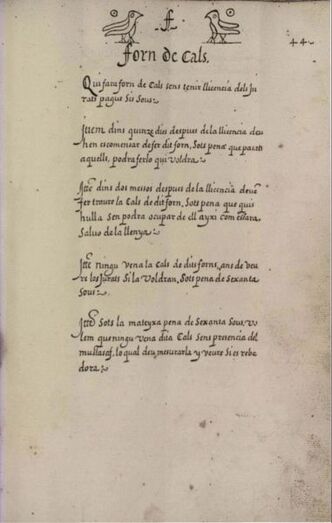 ff
44
forn de Cals.
Qui fara forn de Cals sens tenir llicencia dels Ju
rats pague sis sous
Ittem dins quinze dies despues de la llicencia deu
hen escomensar de fer dit forn, sots pena que passats
aquells, podra ferlo qui voldra
Itte dins dos mesos despues de la llicencia
fer traure la Cals de dit forn, sots pena que quis
hulla sen podra ocupar de ell ayxi com estara
Salvo de la llenya
Itte ningu vena la Cals de dits forns, ans de veu
re los Jurats si la voldran, sots pena de sexanta
sous
Itte sots la mateyxa pena de sexanta sous, vo
lem que ningu vena dita Cals sens presencia del
mustasaf, lo qual deu mesurarla y veure si es rebe
dora